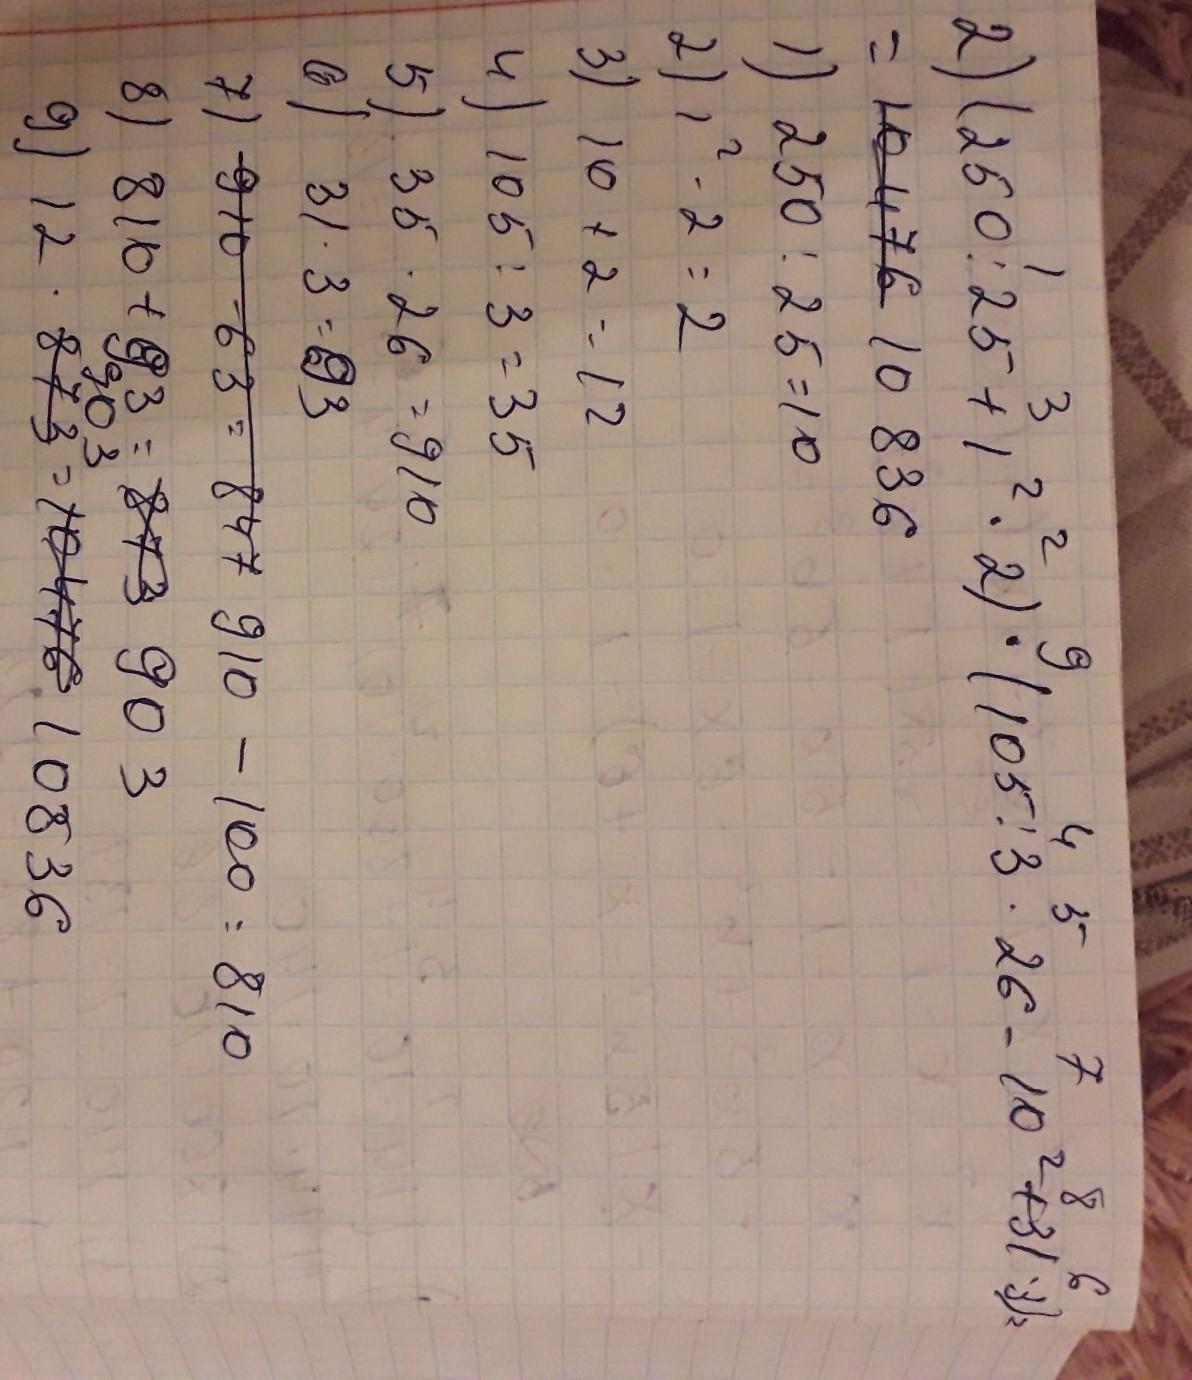 1 3 2 9 4 5 7 8 6
2) (250:25+1²·2)·(105:3·26-10²+31·3)=
= 10476 10 836
1) 250:25=10
2) 1²·2=2
3) 10+2=12
4) 105:3=35
5) 35·26=910
6) 31·3=93
7) 910-63=847 910-100=810
8) 810+93=873 903
903
9) 12·873=10476 10836